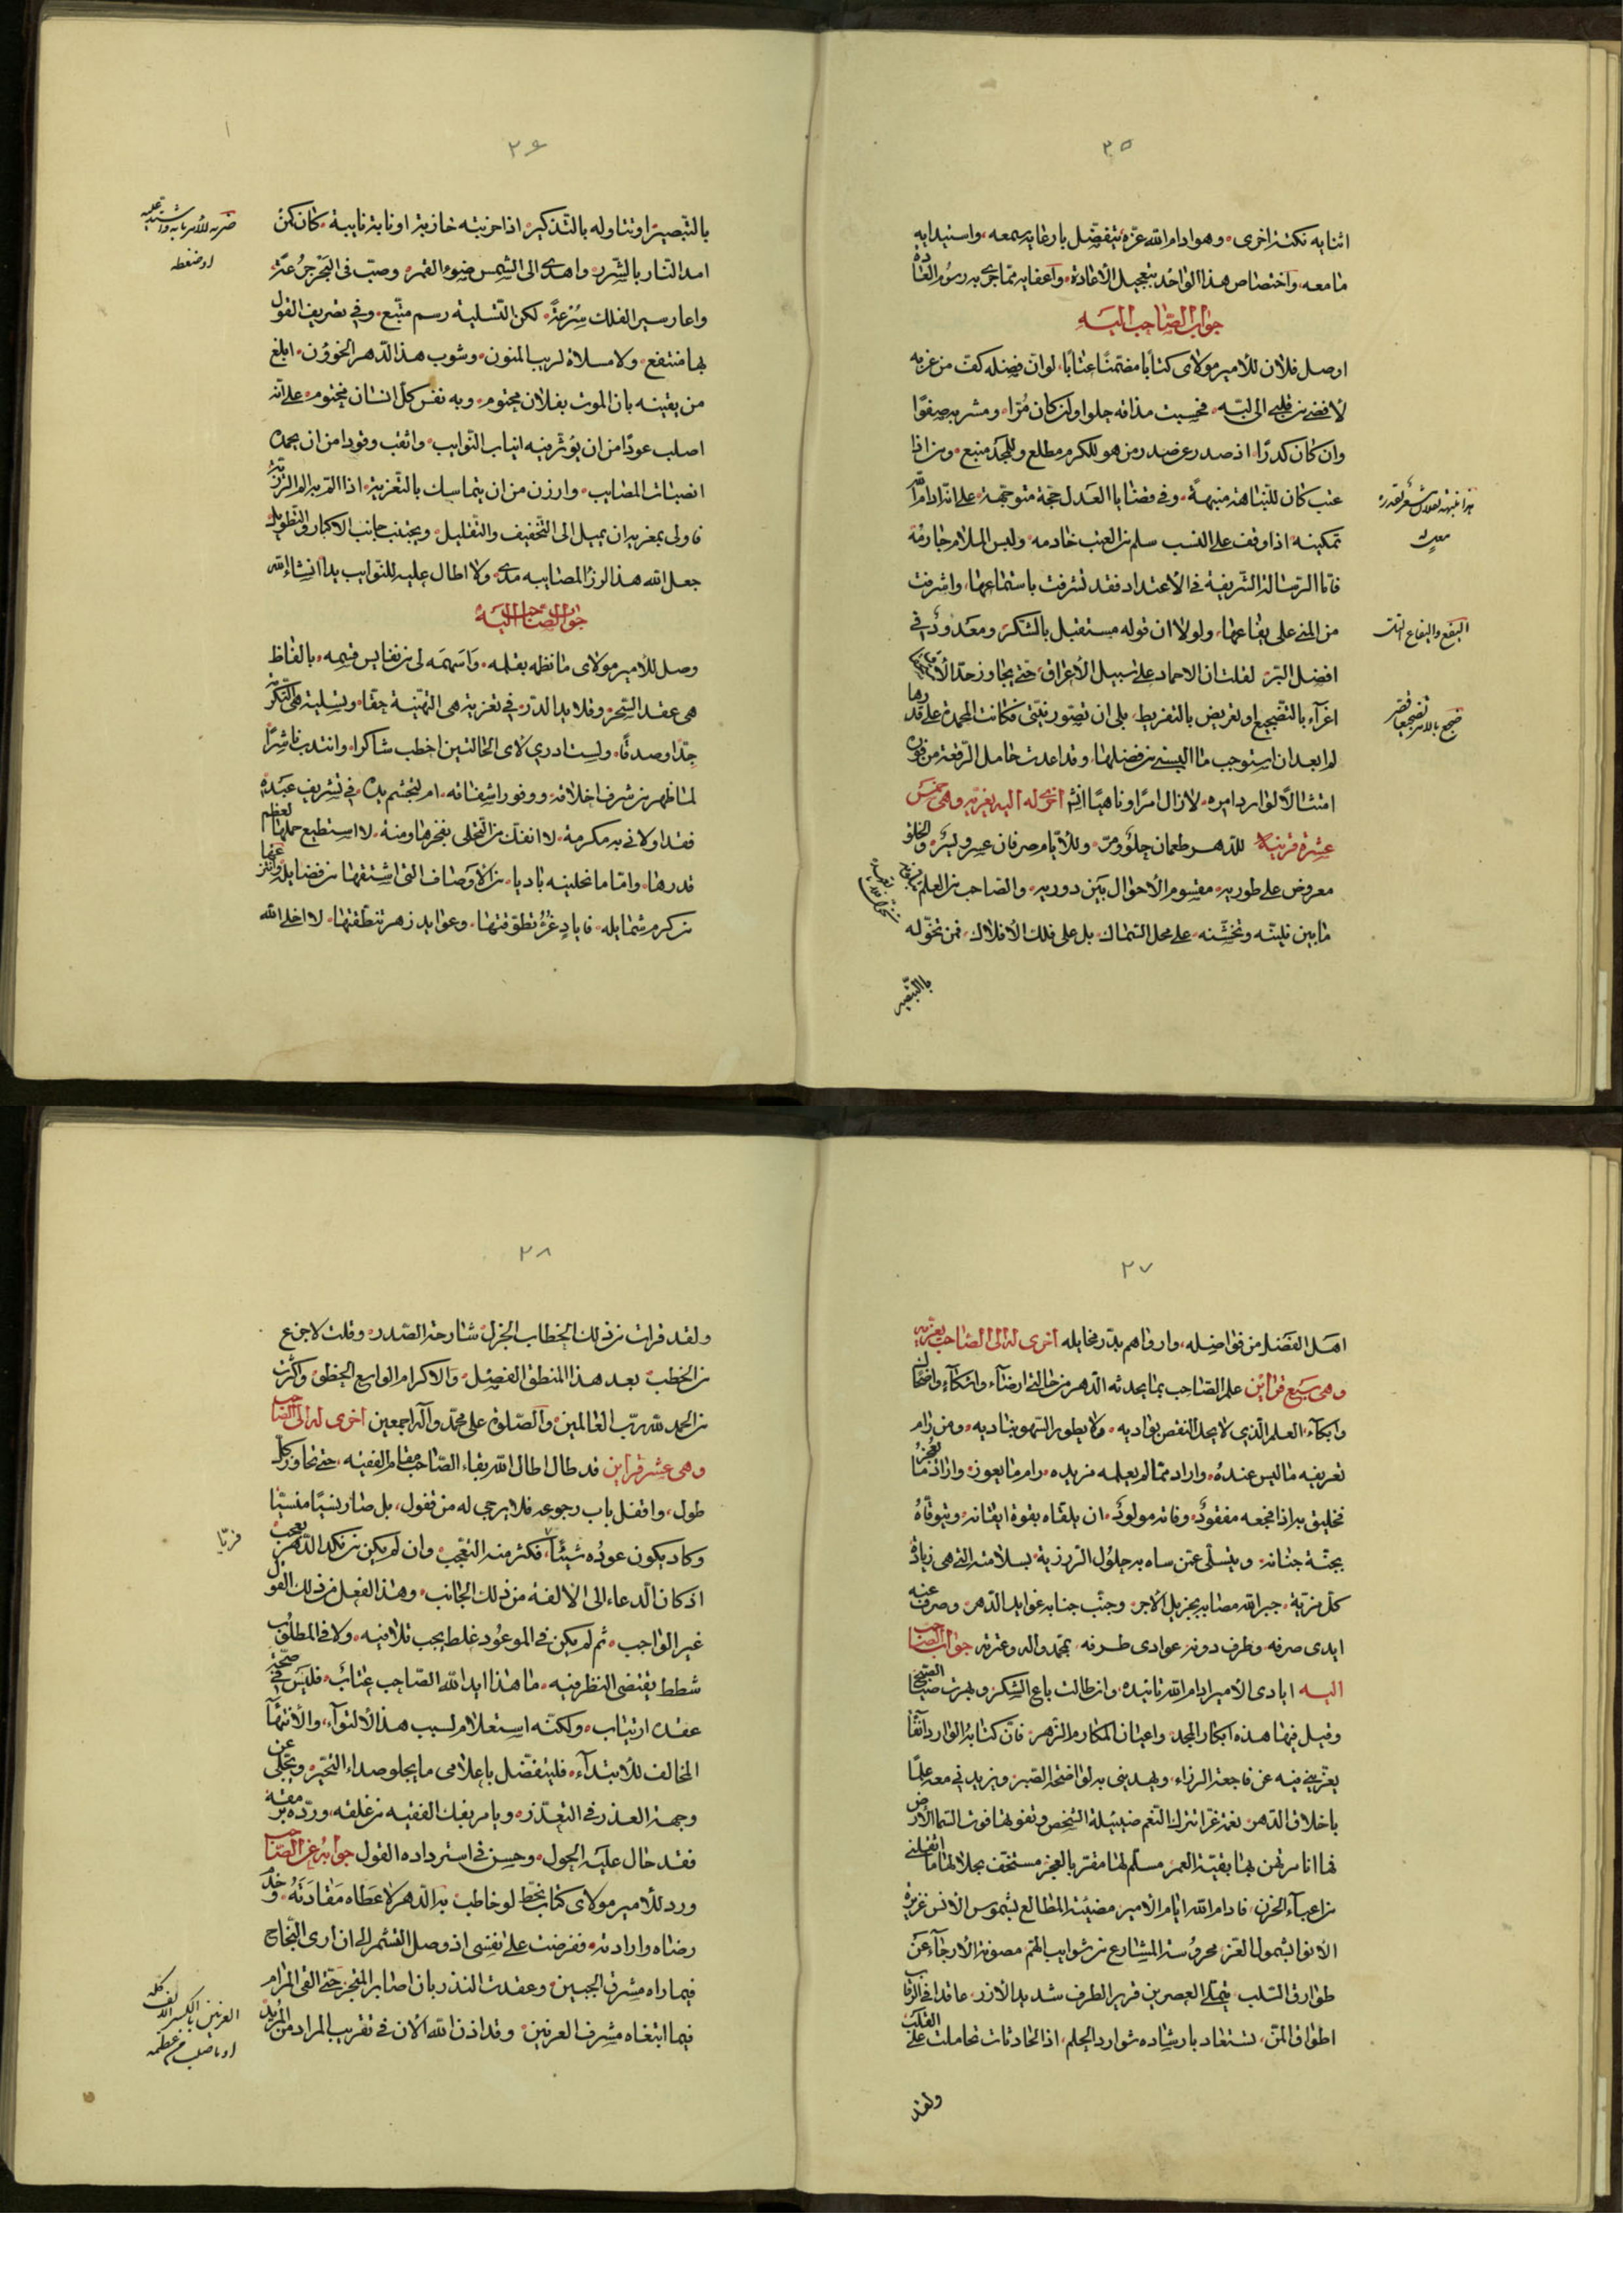 ٢٥
اثنا به نكتة اخرى وهو ادام الله عزّه يتفضّل بارعايه سمعه واستبدا به
ما معه واختصاص هذا الواحد بتعجيل الاعادة واعفايه ممّا جرى به رسوم العادة
جواب الصّاحب اليه
اوصل فلان للأمير مولاى كتابًا مضمّنًا عتابًا لو انّ فضله كفّ من غربه
لأفضى من قلبى الى لبّه فحسبت مذاقه حلوا وان كان مُرّا ومشربه صفوًا
وان كان كدرًا اذ صدر عن صدر من هو للكرم مطلع وللمجد منبع ومن اذا
عتب كان للنّباهة منبهةً وفى قضايا العدل حجّة متوجّهة على انّه ادام الله
تمكينه اذا وقف على السّبب سلم من العتب خادمه وليس الملام جارمُه
فامّا الرّسالة الشّريفة فى الأعتداد فقد تشرفت باستماعها واشرفت
من المنى على يفاعها ولولا ان قوله مستقبل بالشكر ومعدود فى
افضل البرّ لقلت ان الاحماد على سبيل الأغراق حتى يتجاوز حدّ
اغرآء بالتّضجيع او تعريض بالتفريط بلى ان تصوّر نيّتى فكانت المحمدة على قدرها
لم ابعد ان استوجب ما البسنى من فضلها وقد اعدت حامل الرّقعة من فوره
امتثالًا لوارد امره لازال امرًا وناهيًا انش اخرى له اليه يعزيه وهى خمس
عشرة قرينة للدّهر طعمان حلوٌ ومرّ وللأيّام صرفان عسر ويسر والخلق
معروض على طوريه مقسوم الأحوال بين دوريه والصّاحب من العلم
ما بين ليّنه وخشنه على محل السّماك بل على فلك الأفلاك فمن تخوّله
باالتّبصير
البقع واليفاع التل
ضجع بالامر تضجيعا قصر
٢٦
بالتّبصير او تناوله بالتّذكير اذا حزبته حازبة او نابته نايبة كان كمن
امد النّار بالشّرر واهدى الى الشمس ضوء القمر وصبّ فى البحر جرعة
واعار سير الفلك سُرعةً لكن التّسلية رسم متّبع وفى تصريف القول
بها منتفع ولا مسلاة لريب المنون وشوب هذا الدّهر الخوؤن ابلغ
من يقينه بان الموت بفلان محتوم وبه نفس كلّ انسان مختوم على انّه
اصلب عودًا من ان يؤثر فيه انياب النّوايب واثقب وقودا من ان يخمده
انصباب المصايب وارزن من ان يتماسك بالتّعزية اذا الم به الم الرّزيّة
فاولى بمعزيه ان يميل الى التّخفيف والتّقليل ويجتنب جانب الاكثار والتّطويل
جعل الله هذا لرزء المصايبه مدى ولا اطال عليه للنّوايب يدا انشاءالله
جواب الصّاحب اليه
وصل للأمير مولاى ما نظمه بقلمه وأسهمه لى من نفايس قسمه بالفاظ
هى عقد السّحر وقلايد الدّر فى تعزية هى التهنية حقا وتسلية هى التكرمة
جدّا وصدقًا ولست ادرى لأى الحالتين اخطب شاكرا وانتدب ناشرًا
لما ظهر من شرف اخلاقه ووفور اشفاقه ام لتجشّم يده فى تشريف عبده
فقد اولانى به مكرمة لا انفك من التحلى بفخرها ومنة لا استطيع حملها لعظم
قدرها وامّا ما نحلينه باديا من الأوصاف التى اشتقها من فضايله وانتزعها
من كرم شمايله فايادٍ غُرٌّ تطوّقتها وعوايد زهر تنطّقتها لا اخلى الله
ضربه للأمر نابه واشتد عليه
او ضغطه
٢٧
اهل الفضل من فواضله وارواهم بدّر مخايله اخرى له الى الصّاحب يعزيه
وهى سبع قراين علم الصّاحب بما يحدثه الدّهر من حالتى ارضآء وانكآء واضحاك
وابكآء العلم الّذى لا يحلّ النقص بواديه ولا يطور السّهو بناديه ومن رام
تعريفه ما ليس عنده واراد ممّا لم يعلمه مزيده رام ما يعوزه واراد ما يعجزه
فخليق به اذا فجعه مفقود وفاته مولود ان يلقاه بقوة ايقانه ويتوقّاهُ
بجنّة جنانه ويتسلّى عمّن ساه به حلول الرزية بسلامته التى هى زيادة
كل مزيّة جبر الله مصابه بجزيل الأجر وجنّب جنابه غوايل الدّهر وصرف عنه
ايدى صرفه وطرف دونه عوادى طرفه بمحمّد واله وعترته جواب الصّاحب
اليه ايادى الأمير ادام الله تائيده وان طالت باع الشكر وبهرت صباح الصبح
وقيل فيها هذه ابكار المجد واعيان المكارم الزهر فانّ كتابهُ الوارد آنفًا
يعزينى فيه عن فاجعة الرزاء ويهدينى به لواضحة الصبر ويزيد فى معه علمًا
باخلاق الدّهر نعمة غرا تترك النعم ضئيلة الشخص وتفوتها فوت السّما الأرض
فها انا مرتهن بها بقيّة العمر مسلّم لها مقرّ بالعجز مستخفّ بحلالها ما اثقلنى
من اعبآء الحزن فادام الله ايام الأمير مضيئة المطالع بشموس الانس غزيرة
الأنوا بشمول العز محروسة المشارع من شوايب الهمّ مصونة الأرجآء عن
طوارق السّلب يتملّى العصرين قرير الطرف شديد الأزر عاقدا فى الرّقاب
اطواق المنّ تستعاد بارشاده شوارد الحلم اذا الحادثات تحاملت على القلب
ولقد
٢٨
ولقد قرات من ذلك الخطاب الجزل شارحة الصّدر وقلت لا جزع
من الخطب بعد هذا المنطق الفصل والاكرام الواسع الخطو وكثرت
من الحمد لله ربّ العالمين والصّلوة على محمّد وآله اجمعين اخرى له الى الصّاحب
وهى عشر قراين قد طال اطال الله بقاء الصّاحب مقام الفقيه حتى تجاوز كلّ
طول واقفل باب رجوعه فلا يرجى له من قفول بل صار نسيًا منسيًا
وكاد يكون عوده شيئًا فريًا فكثر منه التعجّب وان لم يكن من نكد الدّهر بعجب
اذ كان الدعاء الى الألفة من ذلك الجانب وهذا الفعل من ذلك القول
غير الواجب ثم لم يكن فى الموعود غلط يجب تلافيه ولا فى المطلوب
شطط يقتضى النظر فيه ما هذا ايد الله الصّاحب عتاب فليس فى صحّة
عقده ارتياب ولكنّه استعلام لسبب هذا الألتوآء والأنتهآء
المخالف للأبتدآء فليتفضّل باعلامى ما يجلو صداء التحيّر ويتجلّى عن
وجهة العذر فى التعذّر ويامر بفك الفقيه من غلقه وردّه برمقه
فقد حال عليه الحول وحسن فى استرداده القول جوابه عن الصّاحب
ورد للأمير مولاى كتاب بخطّ لو خاطب به الدّهر لاعطاه مقادته وخدّ
رضاه وارادته ففرضت على نفسى اذ وصل التشمر الى ان ارى النّجاح
فيما راه مشرق الجبين وعقدت النذر بان اصابر المنجز حتى القى المرام
فيما ابتغاه مشرف العرنين وقد اذن الله الآن فى تقريب المراد من المريد
فريا
العرنين بالكسر الانف كله
او ما صلب من عظمه